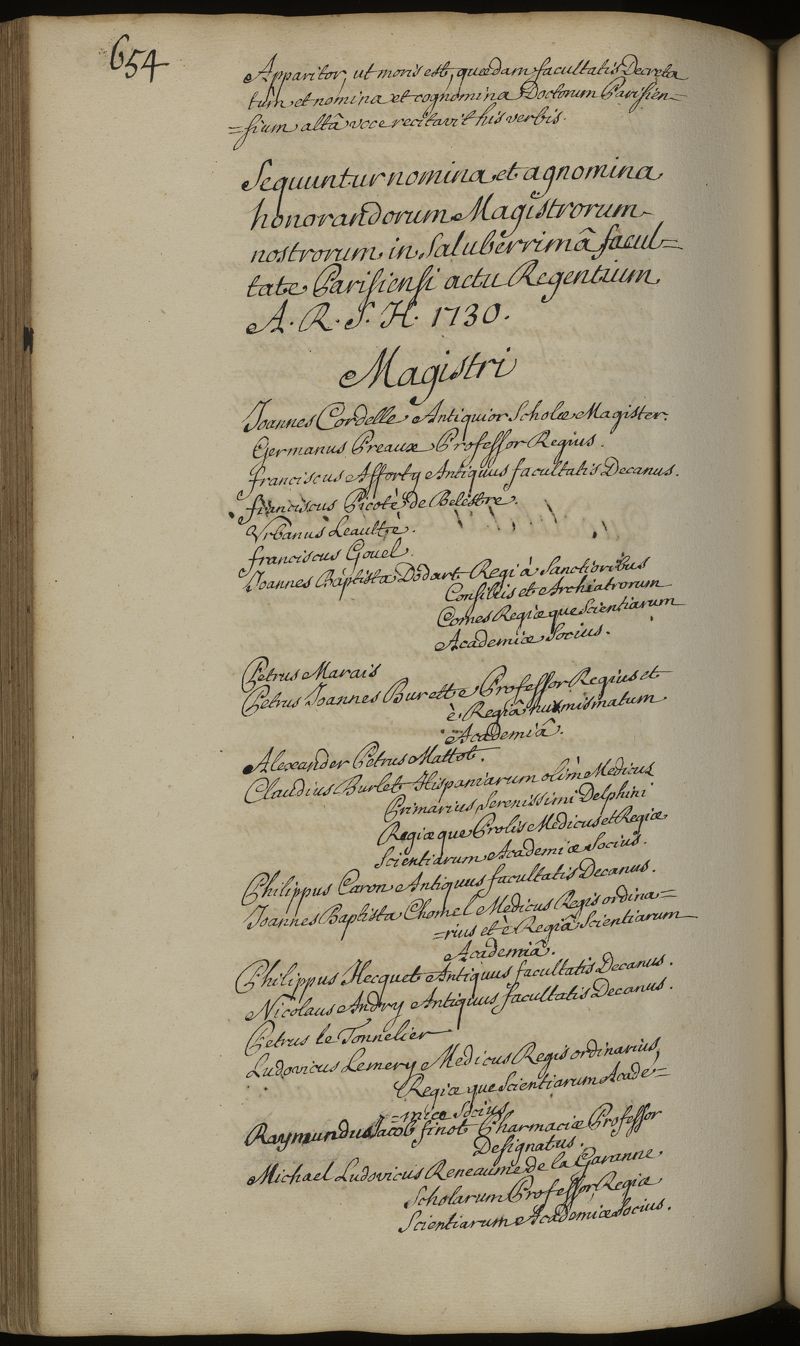 654
Apparitor, ut moris est, quædam facultatis Decreta
tum et nomina et cognomina Doctorum Parisien=
=sium altâ voce recitavit his verbis.
Sequuntur nomina et agnomina
honorandorum Magistrorum
nostrorum in Saluberrimâ facul=
tate Parisiensi actu Regentium
A. R. S. H. 1730.
Magistri
Joannes Cordelle Antiquior Scholæ Magister.
Germanus Preaux Professor Regius.
franciscus Afforty Antiquus facultatis Decanus.
franciscus Picoté de Belestre.
Urbanus Leaulté.
franciscus Gouel.
Joannes Baptista Dodart Regi à Sanctioribus
Consiliis et Archiatrorum
Comes Regiæ que Scientiarum
Academiæ Socius.
Petrus Marais
Petrus Joannes Burette Professor Regius et
è Regiâ numismatum
Academiâ.
Alexander Petrus Mattot.
Claudius Burlet Hispaniarum olim Medicus
Primarius Serenissimi Delphini
Regiæ que Prolis Medicus et Regiæ
Scientiarum Academiæ Socius.
Philippus Caron Antiquus facultatis Decanus.
Joannes Baptista Chomel Medicus Regis ordina=
=rius et è Regiâ Scientiarum
Academiâ.
Philippus Hecquet Antiquus facultatis Decanus.
Nicolaus Andry Antiquus facultatis Decanus.
Petrus le Tonnelier
Ludovicus Lemery Medicus Regis ordinarius
Regiæ que Scientiarum Acade=
=miæ Socius
Raymundus Jacob finot Pharmaciæ Professor
Designatus.
Michael Ludovicus Reneaume de la Garanne
Scholarum Professor Regiæ
Scientiarum Academiæ Socius.